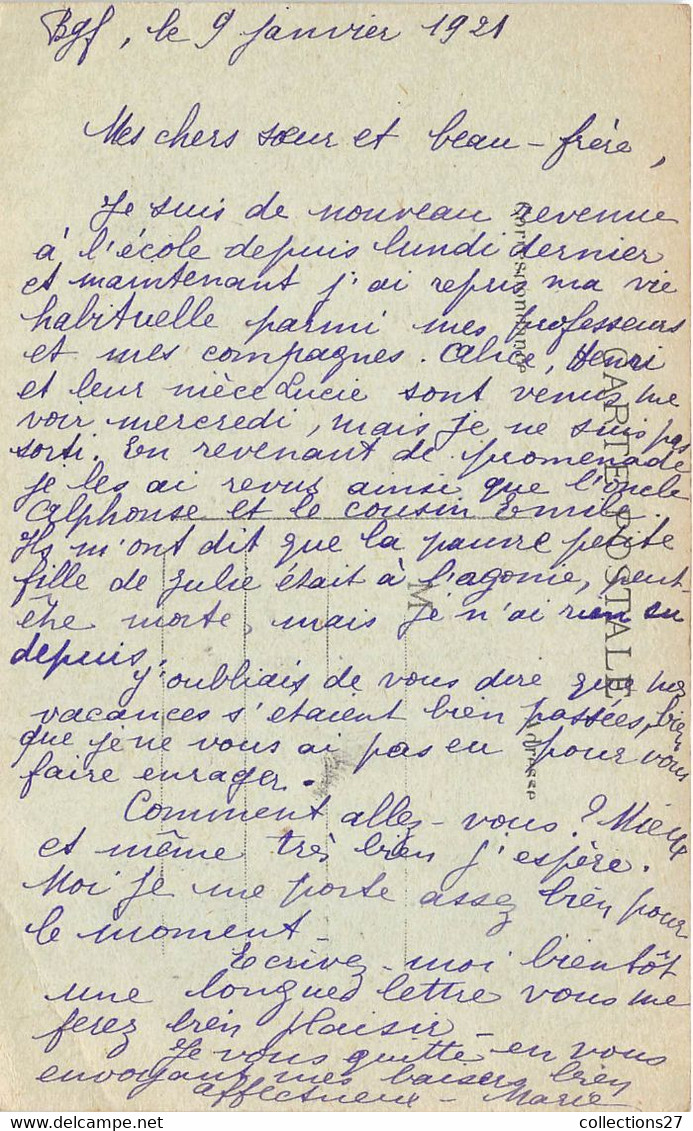 Bgf, le 9 janvier 1921
Mes chers sœur et beau-frère,
Je suis de nouveau revenue
à l'école depuis lundi dernier
et maintenant j'ai repris ma vie
habituelle parmi mes professeurs
et mes compagnes. Alice, Henri
et leur nièce Lucie sont venus me
voir mercredi, mais je ne suis pas
sorti. En revenant de promenade
je les ai revus ainsi que l'oncle
Alphonse et le cousin Emile.
Ils m'ont dit que la pauvre petite
fille de Julie était à l'agonie, peut-
être morte, mais je n'ai rien su
depuis.
J'oubliais de vous dire que mes
vacances s'étaient bien passées, bien
que je ne vous ai pas eu pour vous
faire enrager.
Comment allez-vous? Mieux
et même très bien j'espère.
Moi je me porte assez bien pour
le moment_
Ecrivez-moi bientôt
une longue lettre vous me
ferez bien plaisir_
Je vous quitte en vous
envoyant mes baisers bien
affectueux - Marie
Correspondance
CARTE POSTALE
M
Adresse
collections27